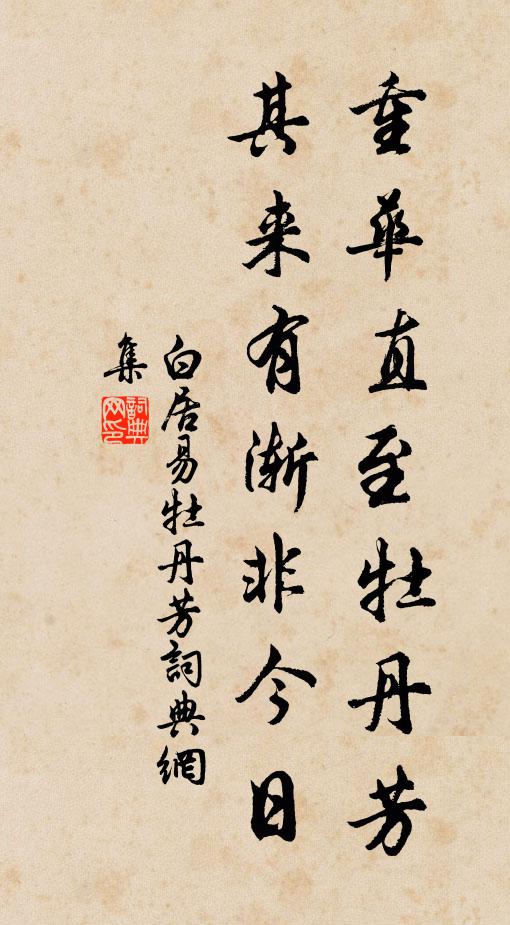 重華直至牡丹芳
其来有渐非今日
白居易牡丹芳詞典網
集
詞典
网印